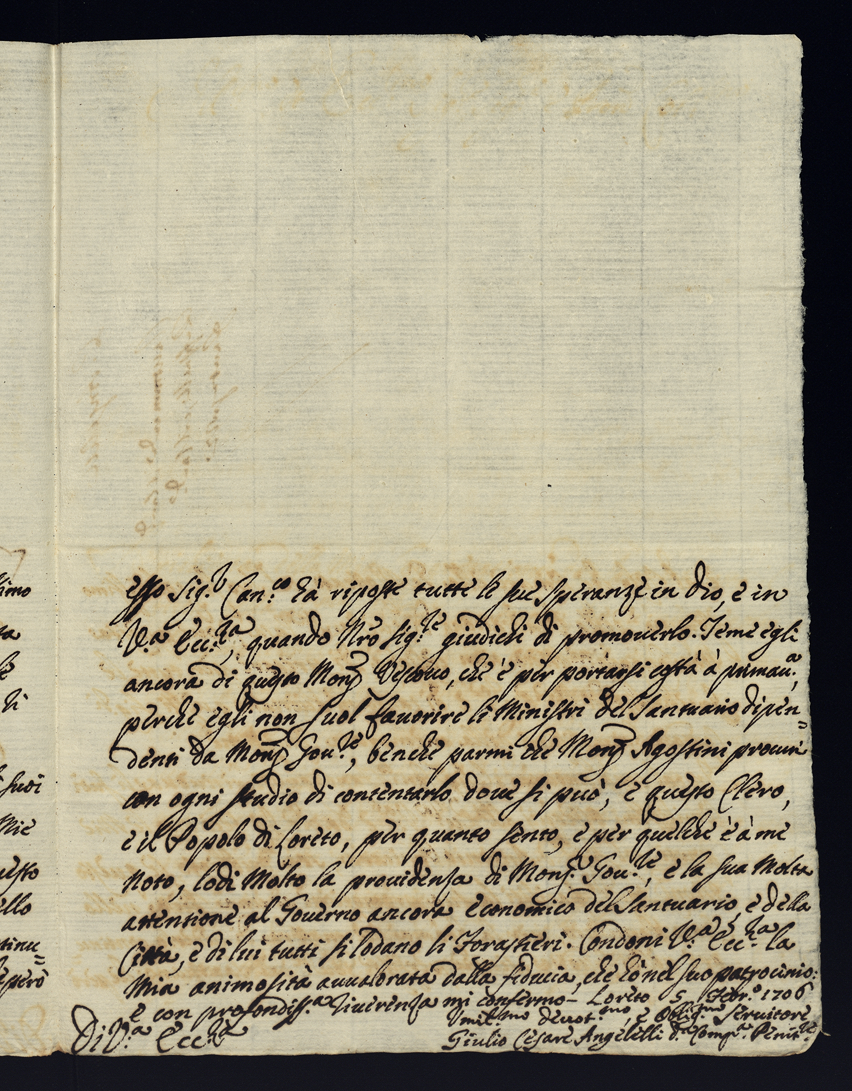 esso Sig.r Can.co hà riposte tutte le sue speranze in Dio, e in
V.a Ecc.za, quando Nro Sig.re giudichi di promouerlo. Teme egli
ancora di questo Mong.r Vescouo, che è per portarsi costà à primau.a,
perche egli non suol fauorire li Ministri del Santuario dipen=
denti da Mong.r Gou.re, benche parmi che Mong.r Agostini procuri
con ogni studio di contentarlo doue si può, e questo Clero,
e il Popolo di Loreto, per quanto sento, e per quelche è à me
noto, lodi molto la prouidenza di Mons.r Gou.re, e la sua molta
attentione al Gouerno ancora economico del Santuario, e della
Città, e di lui tutti si lodano li Forastieri. Condoni V.a Ecc.za la
mia animosità auualorata dalla fiducia, che hò nel suo patrocinio:
e con profondiss.a riuerenza mi confermo - Loreto 5 Febr.o 1706
Di V.a Ecc.za
Umil.mo deuot.mo, e Obl.mo Seruitore
Giulio Cesare Angelelli d.a Comp.a Penit.re
simo
ta
le
li
suoi
Mie
uesto
ello
tinu=
però